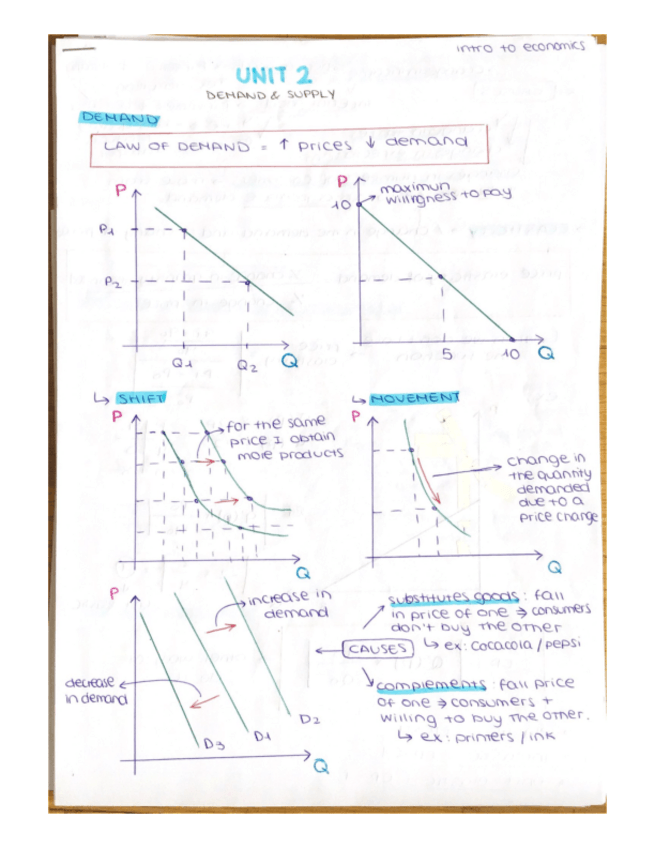 intro to economics
UNIT 2
DEMAND & SUPPLY
DEMAND
LAW OF DEMAND = ↑ prices ↓ demand
P
P1
P2
Q1
Q2
Q
P
10
maximun
willingness to pay
5
10
Q
↳ SHIFT
P
for the same
price I obtain
more products
Q
↳ MOVEMENT
P
change in
the quantity
demanded
due to a
price change
Q
P
increase in
demand
decrease
in demand
D3
D1
D2
Q
CAUSES
substitutes goods : fall
in price of one → consumers
don't buy the other
↳ ex: cocacola / pepsi
complements : fall price
of one → consumers +
willing to buy the other.
↳ ex: printers / ink